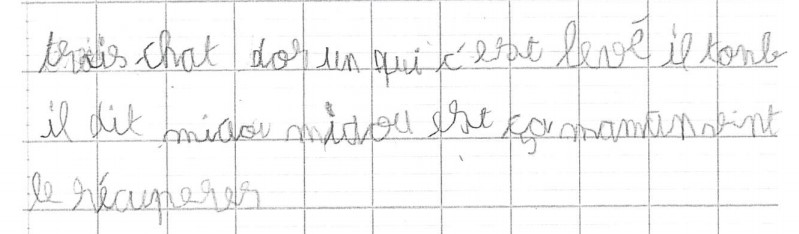 trois chat dor un qui c'est levé il tonb
il dit miaou miaou est ça maman vint
le récuperer